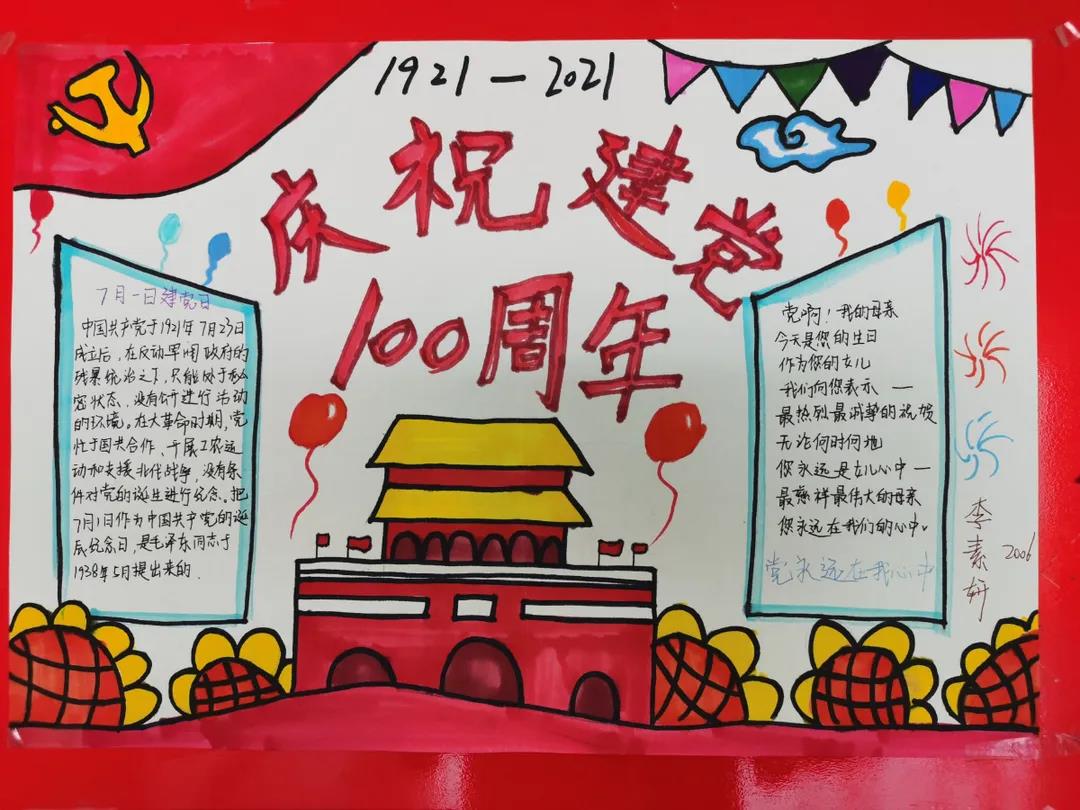 1921-2021
庆祝建党
100周年
7月一日建党日
中国共产党于1921年7月23日
成立后,在反动军阀政府的
残暴统治之下,只能处于秘
密状态,没有公开进行活动
的环境。在大革命时期,党
忙于国共合作、开展工农运
动和支援北伐战争,没有条
件对党的诞生进行纪念。把
7月1日作为中国共产党的诞
辰纪念日,是毛泽东同志于
1938年5月提出来的.
党啊!我的母亲
今天是您的生日
作为您的女儿
我们向您表示—
最热烈最诚挚的祝贺
无论何时何地
您永远是女儿心中—
最慈祥最伟大的母亲
您永远在我们的心中。
党永远在我心中
李素妍
2006